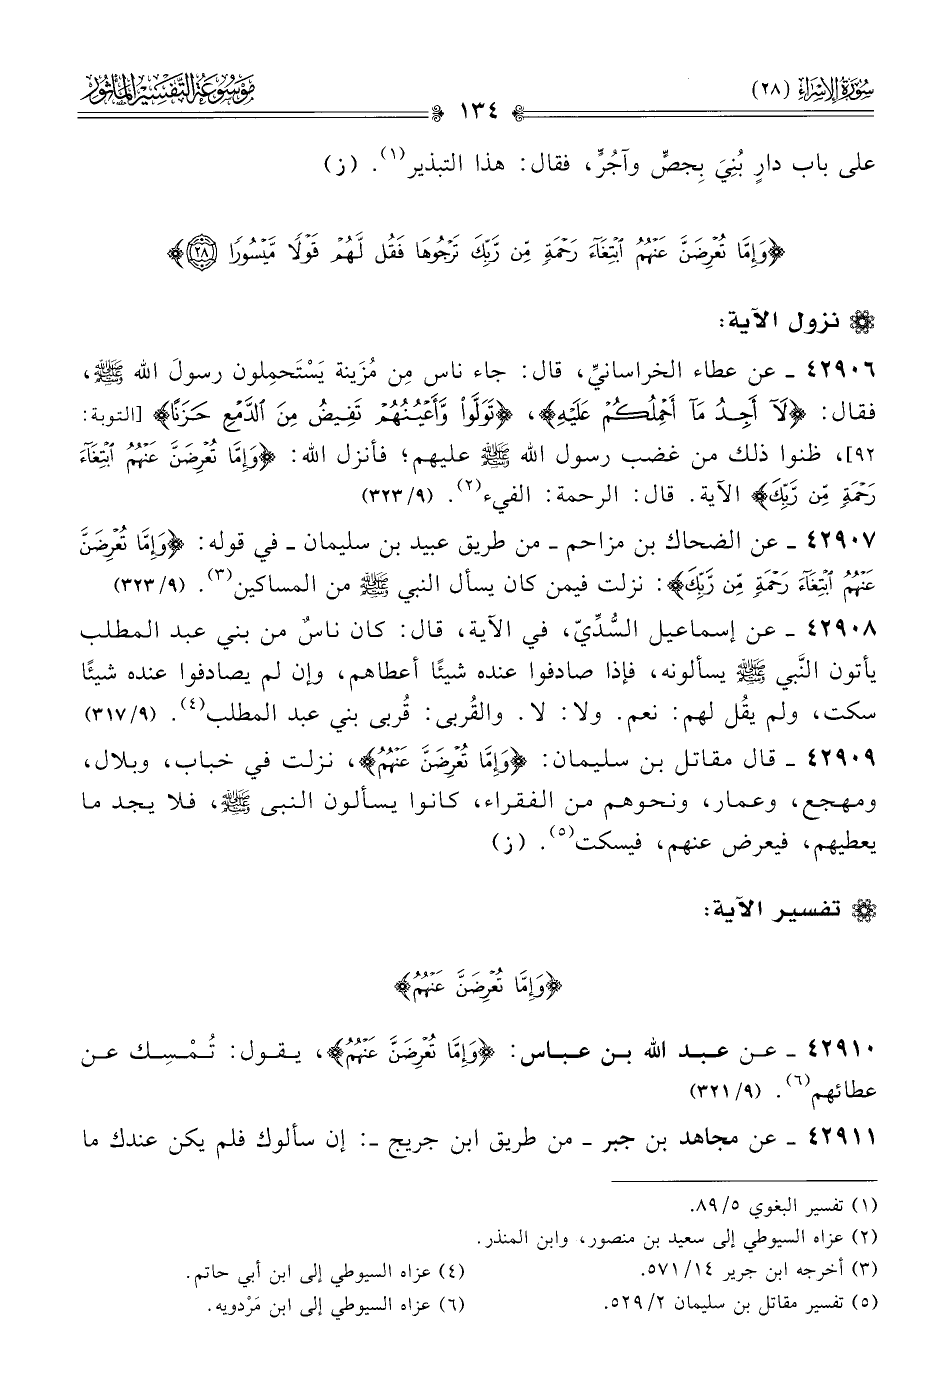 سُورَةُ الإِسْرَاءِ (٢٨)
١٣٤
مَوْسُوعَةُ التَّفْسِيرِ المَأْثُورِ
على باب دارٍ بُنِيَ بِجصٍّ وآجُرٍّ، فقال: هذا التبذير(١). (ز)
﴿وَإِمَّا تُعْرِضَنَّ عَنْهُمُ ٱبْتِغَآءَ رَحْمَةٍ مِّن رَّبِّكَ تَرْجُوهَا فَقُل لَّهُمْ قَوْلًا مَّيْسُورًا ٢٨﴾
نزول الآية:
٤٢٩٠٦ ـ عن عطاء الخراسانيِّ، قال: جاء ناس مِن مُزَينة يَسْتَحمِلون رسولَ الله ﷺ،
فقال: ﴿لَآ أَجِدُ مَآ أَحْمِلُكُمْ عَلَيْهِ﴾، ﴿تَوَلَّوا۟ وَّأَعْيُنُهُمْ تَفِيضُ مِنَ ٱلدَّمْعِ حَزَنًا﴾ [التوبة:
٩٢]، ظنوا ذلك من غضب رسول الله ﷺ عليهم؛ فأنزل الله: ﴿وَإِمَّا تُعْرِضَنَّ عَنْهُمُ ٱبْتِغَآءَ
رَحْمَةٍ مِّن رَّبِّكَ﴾ الآية. قال: الرحمة: الفيء(٢). (٣٢٣/٩)
٤٢٩٠٧ ـ عن الضحاك بن مزاحم ـ من طريق عبيد بن سليمان ـ في قوله: ﴿وَإِمَّا تُعْرِضَنَّ
عَنْهُمُ ٱبْتِغَآءَ رَحْمَةٍ مِّن رَّبِّكَ﴾: نزلت فيمن كان يسأل النبي ﷺ من المساكين(٣). (٣٢٣/٩)
٤٢٩٠٨ ـ عن إسماعيل السُّدِّيِّ، في الآية، قال: كان ناسٌ من بني عبد المطلب
يأتون النَّبي ﷺ يسألونه، فإذا صادفوا عنده شيئًا أعطاهم، وإن لم يصادفوا عنده شيئًا
سكت، ولم يقُل لهم: نعم. ولا: لا. والقُربى: قُربى بني عبد المطلب(٤). (٣١٧/٩)
٤٢٩٠٩ ـ قال مقاتل بن سليمان: ﴿وَإِمَّا تُعْرِضَنَّ عَنْهُمُ﴾، نزلت في خباب، وبلال،
ومهجع، وعمار، ونحوهم من الفقراء، كانوا يسألون النبي ﷺ، فلا يجد ما
يعطيهم، فيعرض عنهم، فيسكت(٥). (ز)
تفسير الآية:
﴿وَإِمَّا تُعْرِضَنَّ عَنْهُمُ﴾
٤٢٩١٠ ـ عن عبد الله بن عباس: ﴿وَإِمَّا تُعْرِضَنَّ عَنْهُمُ﴾، يقول: تُمْسِك عن
عطائهم(٦). (٣٢١/٩)
٤٢٩١١ ـ عن مجاهد بن جبر ـ من طريق ابن جريج ـ: إن سألوك فلم يكن عندك ما
(١) تفسير البغوي ٨٩/٥.
(٢) عزاه السيوطي إلى سعيد بن منصور، وابن المنذر.
(٣) أخرجه ابن جرير ٥٧١/١٤.
(٤) عزاه السيوطي إلى ابن أبي حاتم.
(٥) تفسير مقاتل بن سليمان ٥٢٩/٢.
(٦) عزاه السيوطي إلى ابن مَرْدويه.